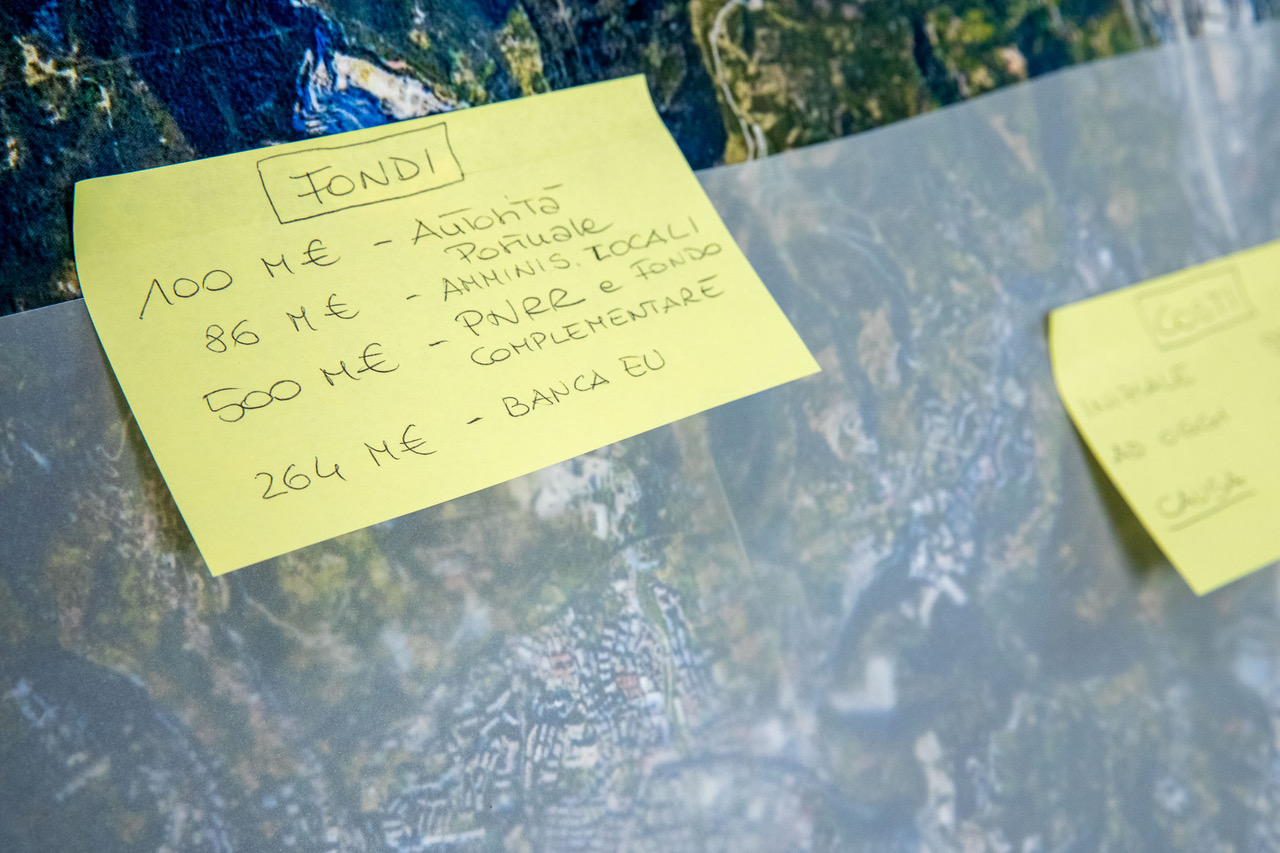 FONDI
100 M€ - Autorità
Portuale
86 M€ - AMMINIS. LOCALI
500 M€ - PNRR e FONDO
COMPLEMENTARE
264 M€ - BANCA EU
COSTI
INIZIALE
AD OGGI
CAUSA